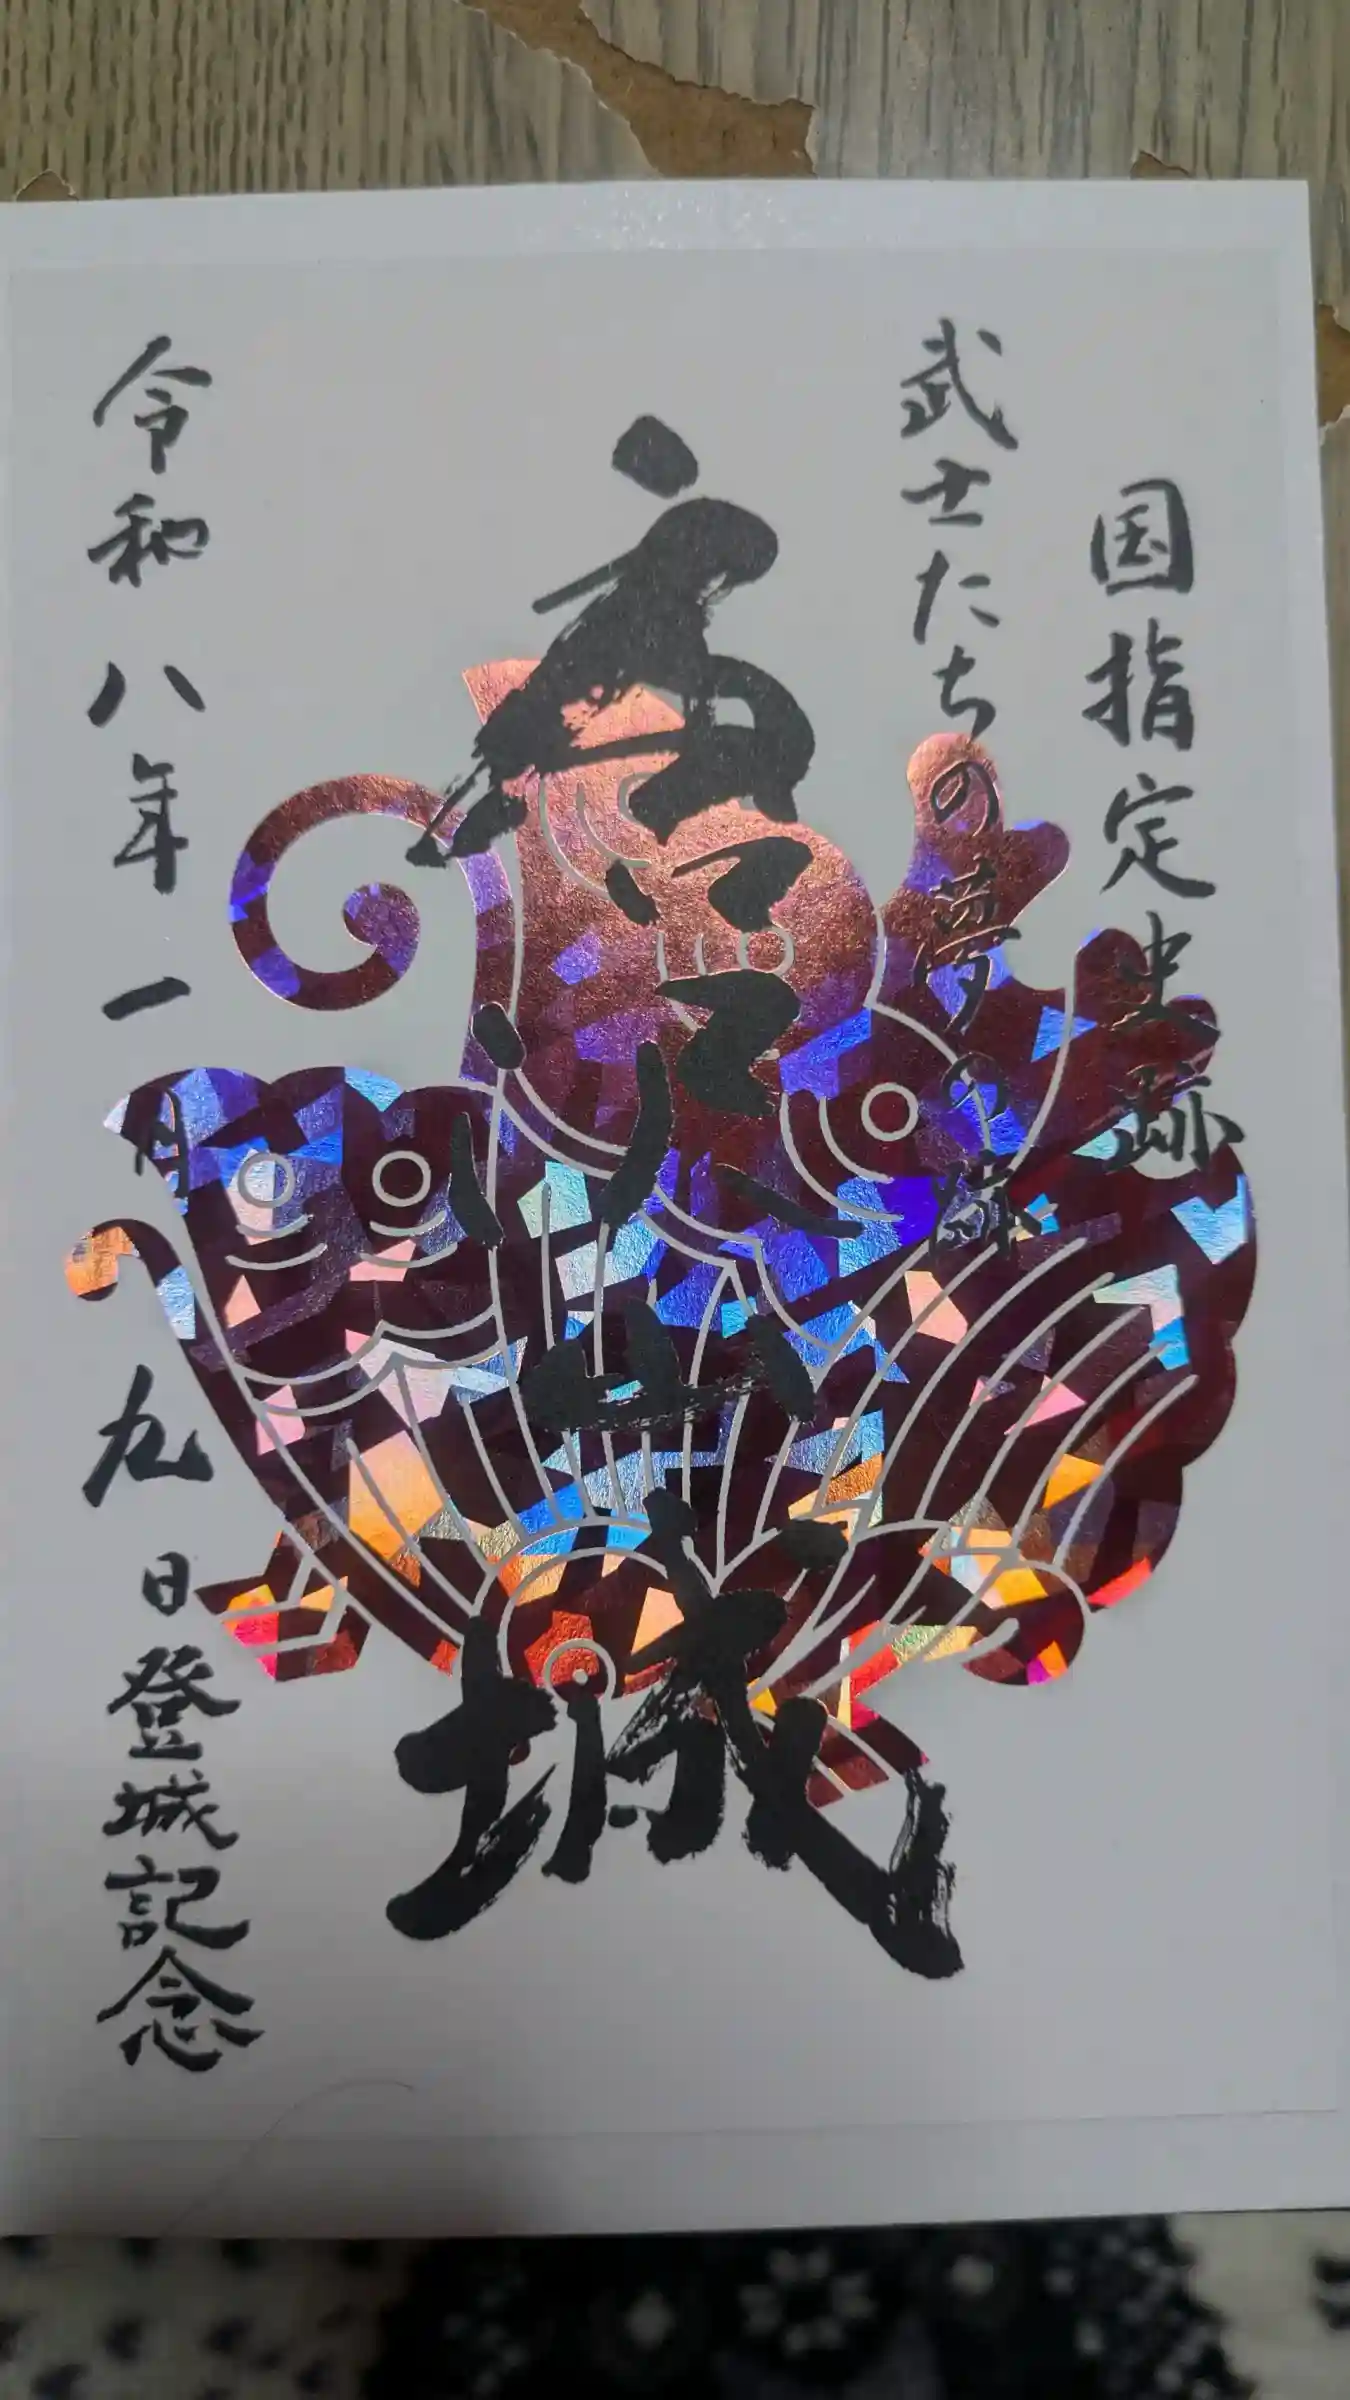 国指定史跡
武士たちの夢の跡
唐沢山城
令和八年一月九日登城記念